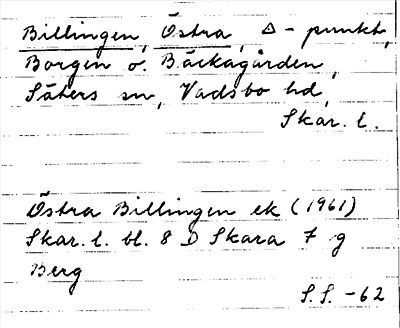 Billingen, Östra, Δ-punkt,
Borgen o. Bäckagården,
Säters sn, Vadsbo hd,
Skar. l.
Östra Billingen ek (1961)
Skar. l. bl. 8 D Skara 7 g
Berg
S.S. -62